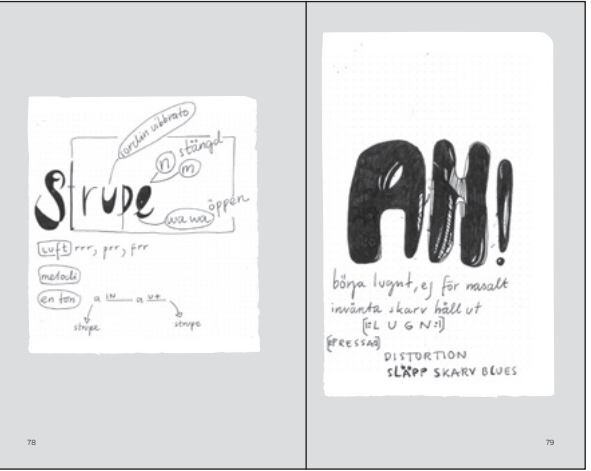 vibbrato
stängd
n
m
Strupe
öppen
wa wa
LUFT rrr, prr, frr
metodi
en ton
a IN a UT
strupe
strupe
78
AH!
börja lugnt, ej för nasalt
invänta skarv håll ut
[:LUGN:]
[PRESSA]
DISTORTION
SLÄPP SKARV BLUES
79